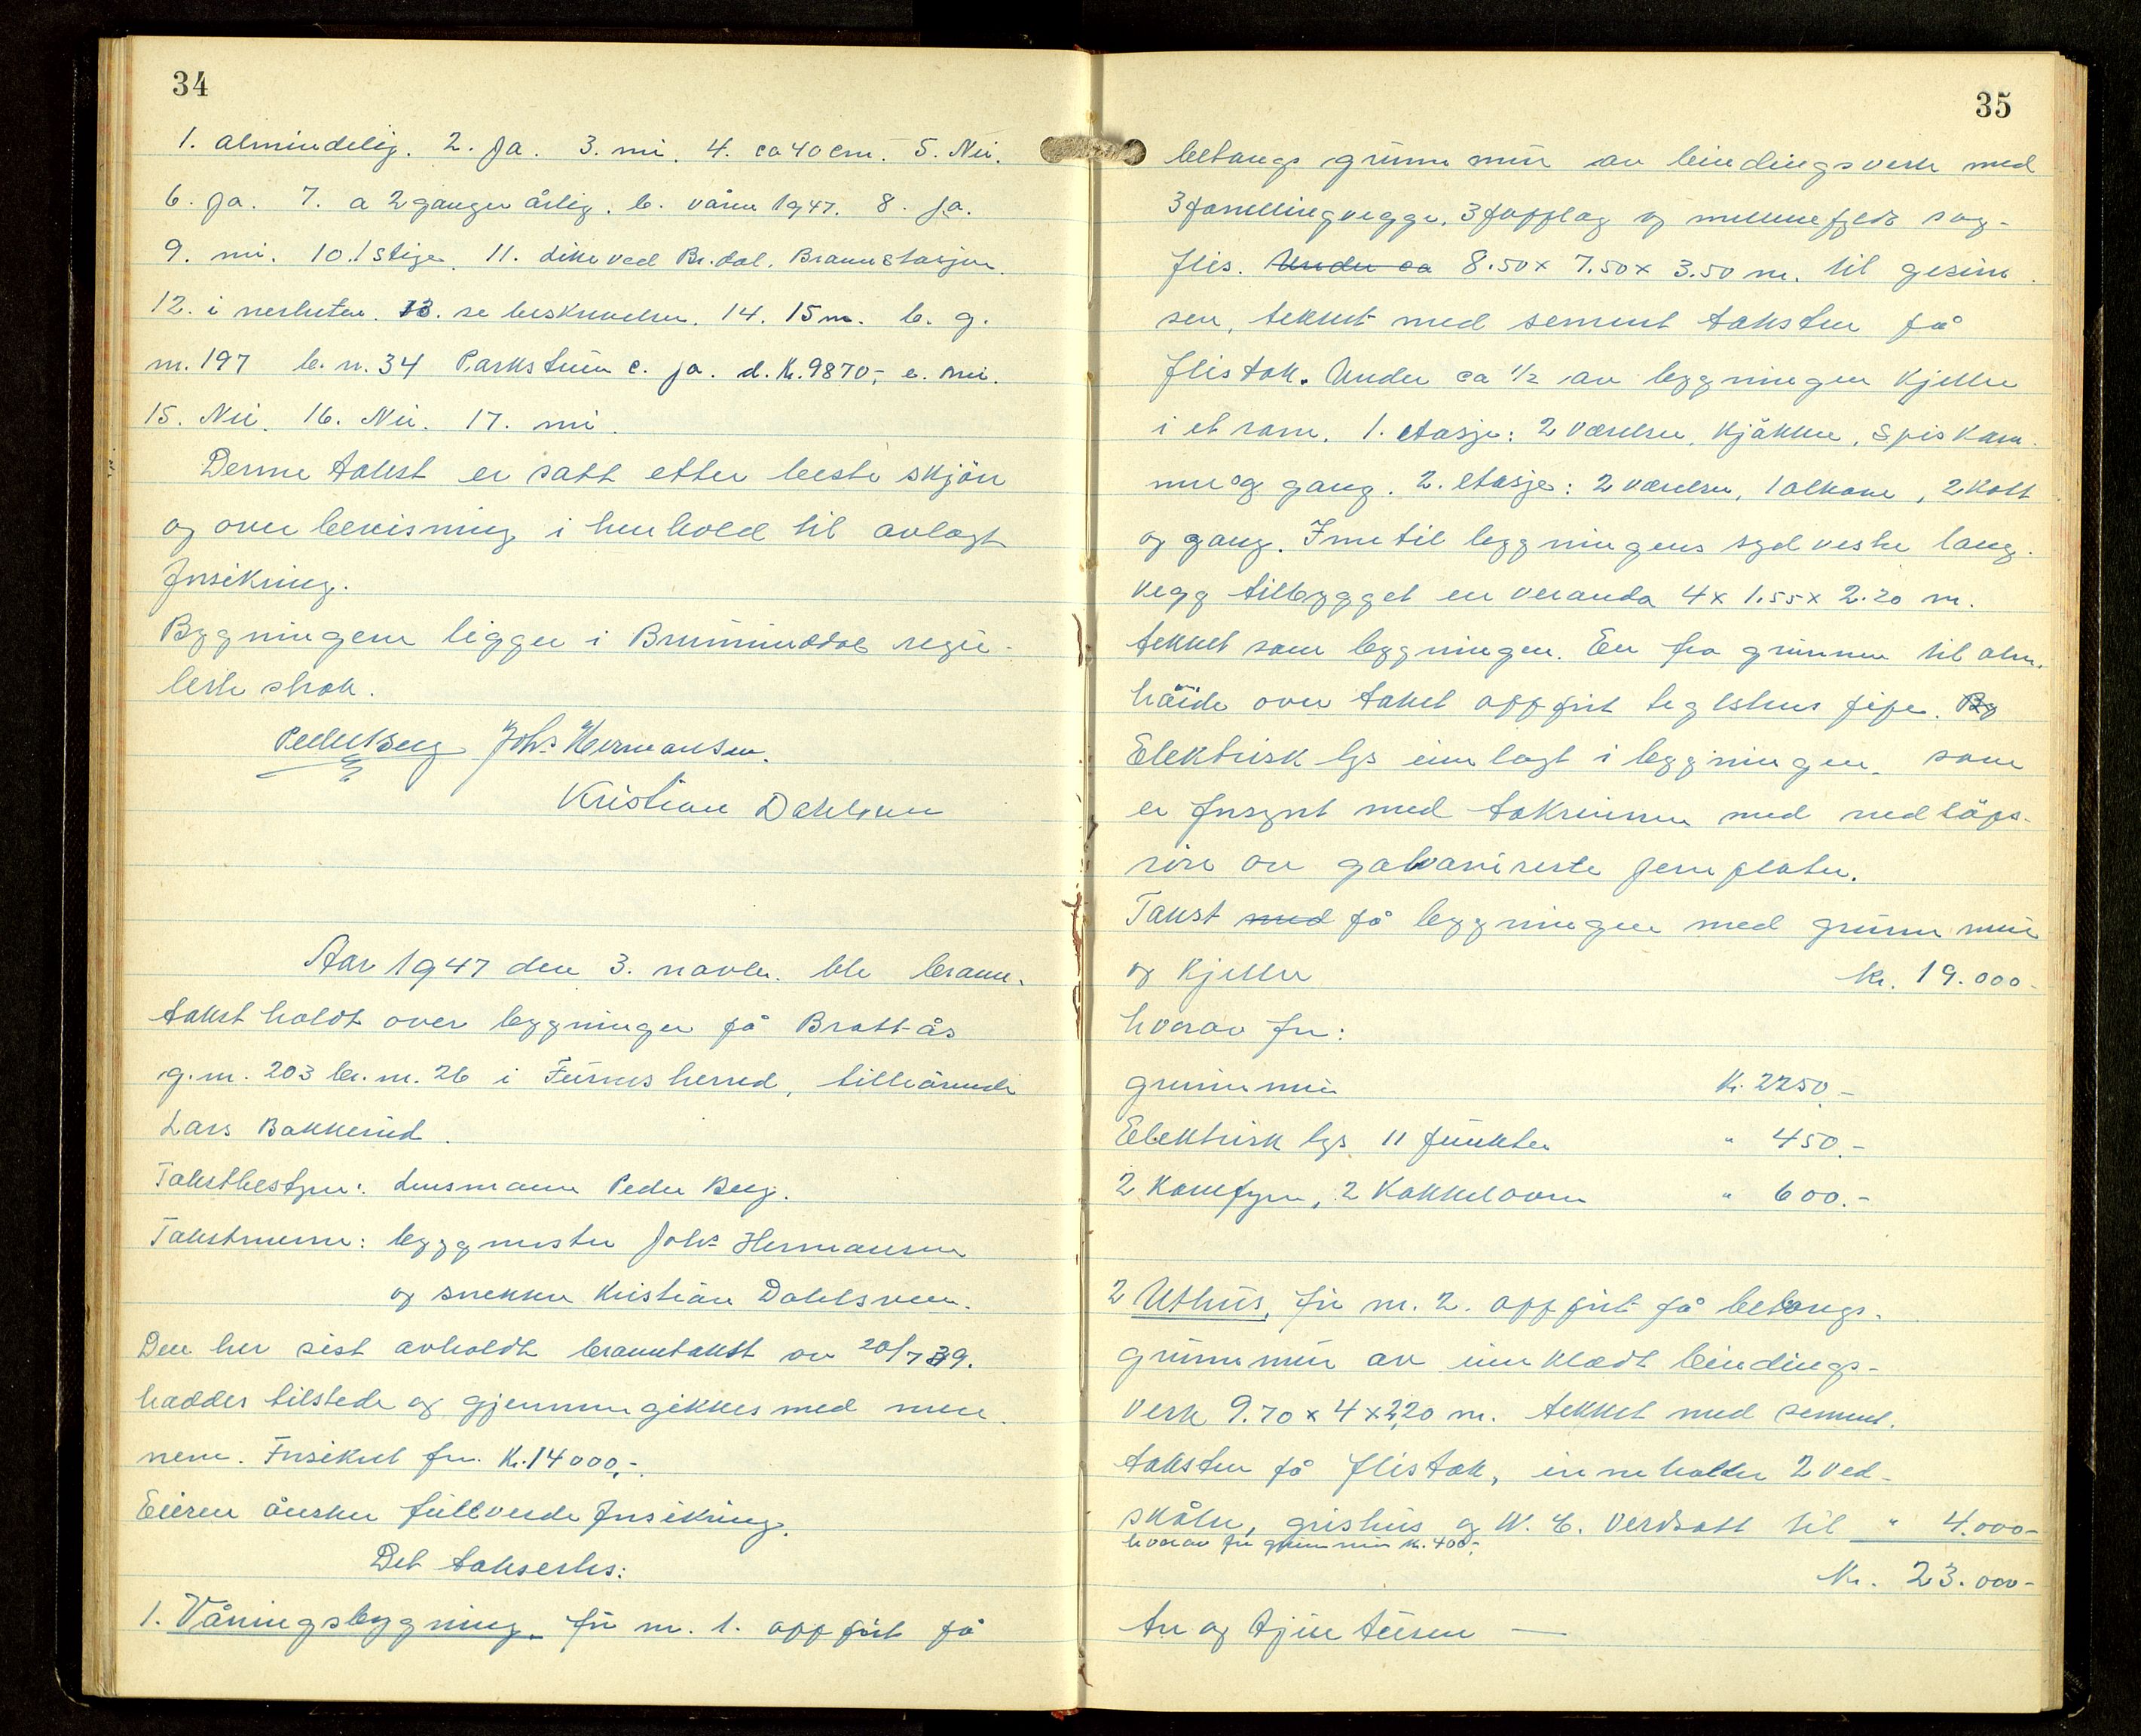 34
1. almindelig. 2. Ja. 3. nei. 4. ca 40 cm. 5. Nei.
6. Ja. 7. a 2 ganger årlig. b. våren 1947. 8. Ja.
9. nei. 10. 1 stige. 11. dike ved Br.dal. Brannstasjon.
12. i nærheten. 13. se beskrivelsen. 14. 15 m. b. g.
nr. 197 b. nr. 34 Parkstuen c. ja. d. Kr. 9870,- e. nei.
15. Nei. 16. Nei. 17. nei.
Denne takst er satt etter beste skjön
og overbevisning i henhold til avlagt
forsikring.
Bygningene ligger i Brumunddal regu-
lerte strök.
Peder Berg Johs Hermansen.
Kristian Dahlsveen
Aar 1947 den 3. novbr. ble brann-
takst holdt over bygninger på Brattås
g.nr. 203 br.nr. 26 i Furnes herred, tilhörende
Lars Bakkerud.
Takstbestyrer: Lensmann Peder Berg.
Takstmenn: byggmester Johs Hermansen
og snekker Kristian Dahlsveen.
Den her sist avholdt branntakst av 20/7 39.
haddes tilstede og gjennemgikkes med men-
nene. Forsikret for Kr. 14000,-.
Eieren önsker fullverdeforsikring.
Det takseres:
1. Våningsbygning. för nr. 1. oppfört på
35
betongs grunnmur av bindingsverk med
3 panelingvegge, 3 papplag og mellemfyldt sag-
flis. Under ca 8.50 x 7.50 x 3.50 m. til gesim-
sen, tekket med sement taksten på
flistak. Under ca 1/2 av bygningen kjeller
i et rom. 1. etasje: 2 værelser, kjökken, spiskam-
mer og gang. 2. etasje: 2 værelser, 1 alkove, 2 kott
og gang. Inntil bygningens sydvestre lang-
vegg tilbygget en veranda 4 x 1.55 x 2.20 m.
tekket som bygningen. En fra grunnen til alm.
höide over taket oppfört teglstens pipe. By
Elektrisk lys innlagt i bygningen, som
er forsynt med takrenner med nedlöps-
rör av galvaniserte jernplater.
Takst med på bygningen med grunnmur
og kjeller kr. 19.000-
hvorav for:
grunnmur Kr. 2250.-
Elektrisk lys 11 punkter " 450.-
2 komfyrer, 2 kakkelovner " 600.-
2 Uthus, för nr. 2. oppfört på betongs-
grunnmur av innklædt bindings-
verk 9.70 x 4 x 2,20 m. tekket med sement-
taksten på flistak, inneholder 2 ved-
skåler, grishus og W.C. Verdsatt til " 4.000-
hvorav for grunnmur kr. 400-
Kr. 23.000-
tre og tjue tusen —